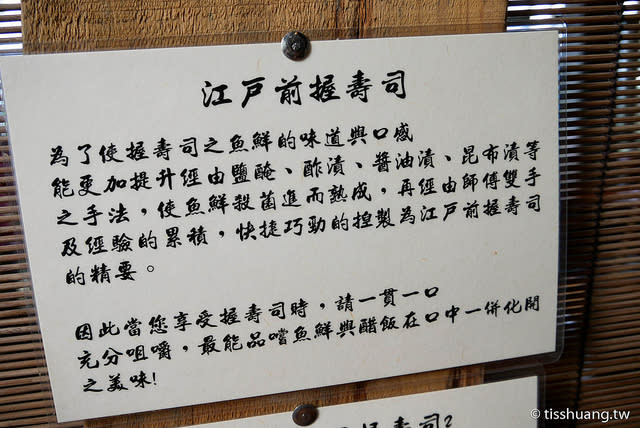 江戶前握壽司
為了使握壽司之魚鮮的味道與口感
能更加提升經由鹽醃、酢漬、醬油漬、昆布漬等
之手法，使魚鮮殺菌進而熟成，再經由師傅雙手
及經驗的累積，快捷巧勁的捏製為江戶前握壽司
的精要。
因此當您享受握壽司時，請一貫一口
充分咀嚼，最能品嚐魚鮮與醋飯在口中一併化開
之美味!
壽司?
© tisshuang.tw